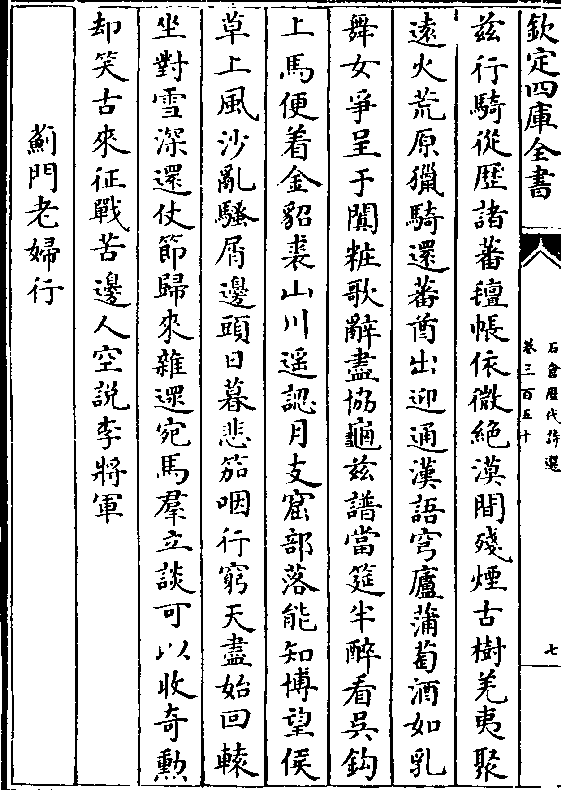 欽定四庫全書
石倉歷代詩選
卷三百五十
七
兹行騎從歷諸蕃氊帳依微絶漠間殘煙古樹羌夷聚
逺火荒原獵騎還蕃酋出迎通漢語穹廬蒲萄酒如乳
舞女爭呈于闐粧歌辭盡協龜兹譜當筵半醉看吳鈎
上馬便着金貂裘山川遥認月支窟部落能知博望侯
草上風沙亂騷屑邊頭日暮悲笳咽行窮天盡始回轅
坐對雪深還仗節歸來雜遝宛馬羣立談可以收奇勲
却笑古來征戰苦邊人空説李將軍
薊門老婦行